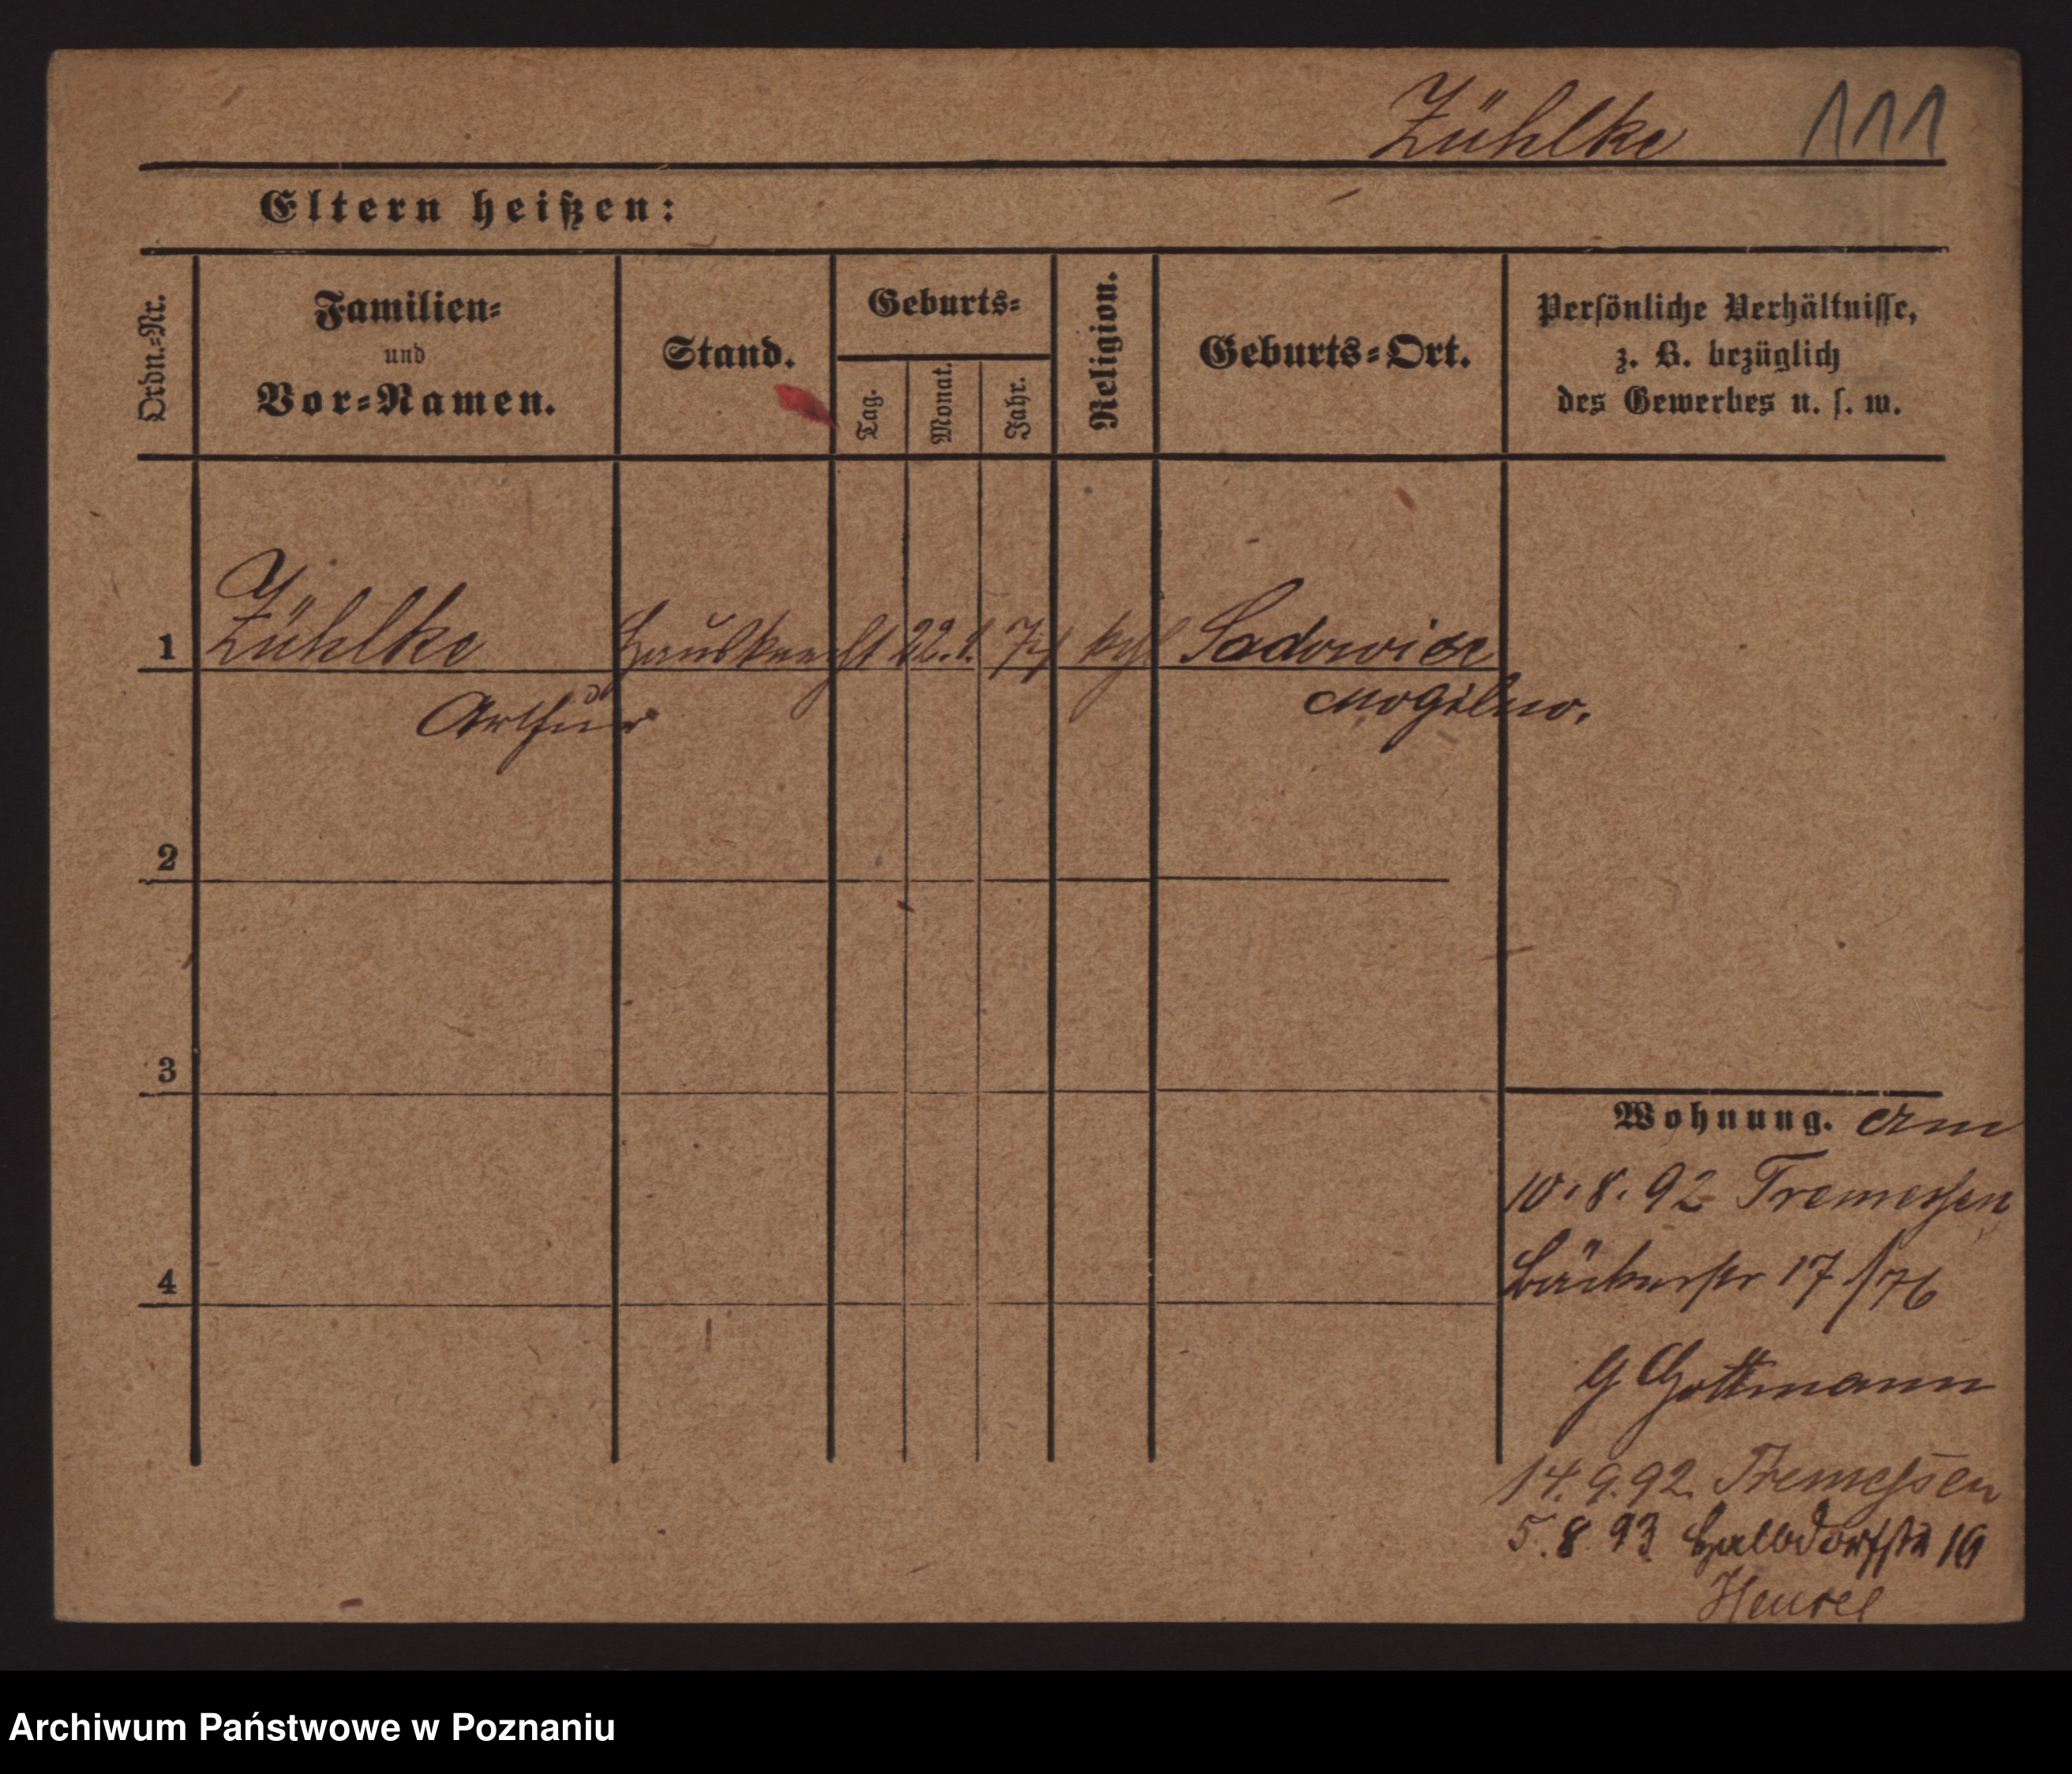 Zühlke 111
Eltern heißen:
Ordn.-Nr.
Familien-
und
Vor-Namen.
Stand.
Geburts-
Tag.
Monat.
Jahr.
Religion.
Geburts-Ort.
Persönliche Verhältnisse,
z. B. bezüglich
des Gewerbes u. s. w.
1 Zühlke Hausknecht 22. 1. 74 kath Sadowiec
Arthur Mogilno.
2
3
4
Wohnung. Am
10. 8. 92 Tremessen
Bäckerstr 17/76
G Gottmann
14. 9. 92. Tremessen
5. 8. 93 Halbdorfstr 16
Archiwum Państwowe w Poznaniu